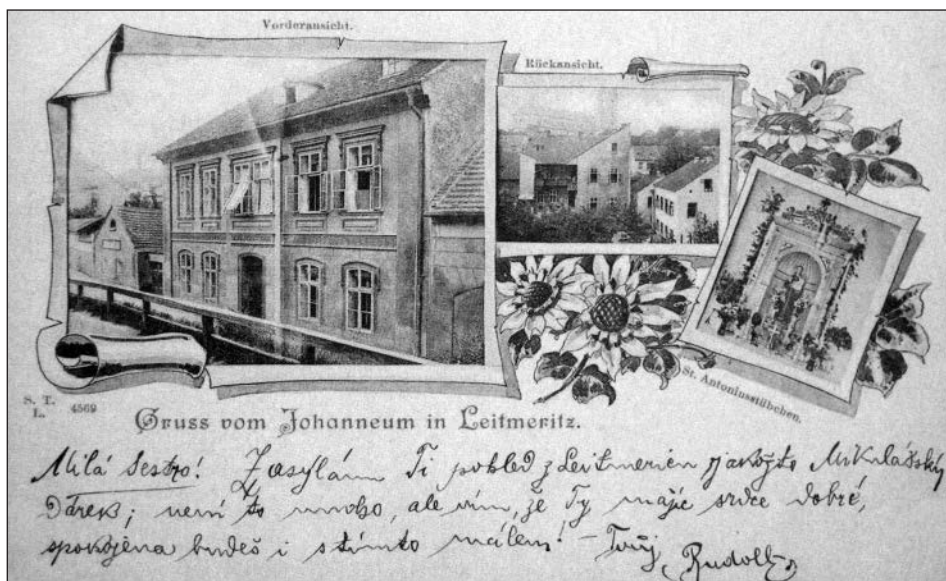 Vorderansicht.
Rückansicht.
St. Antoniusstübchen.
S. T.
L. 4569
Gruss vom Johanneum in Leitmeritz.
Milá Sestro! Zasylám Ti pohled z Leitmeritz jakožto Mikulášský
Dárek; není to mnoho, ale vím, že Ty majíc srdce dobré,
spokojena budeš i s tímto málem! - Tvůj Rudolf